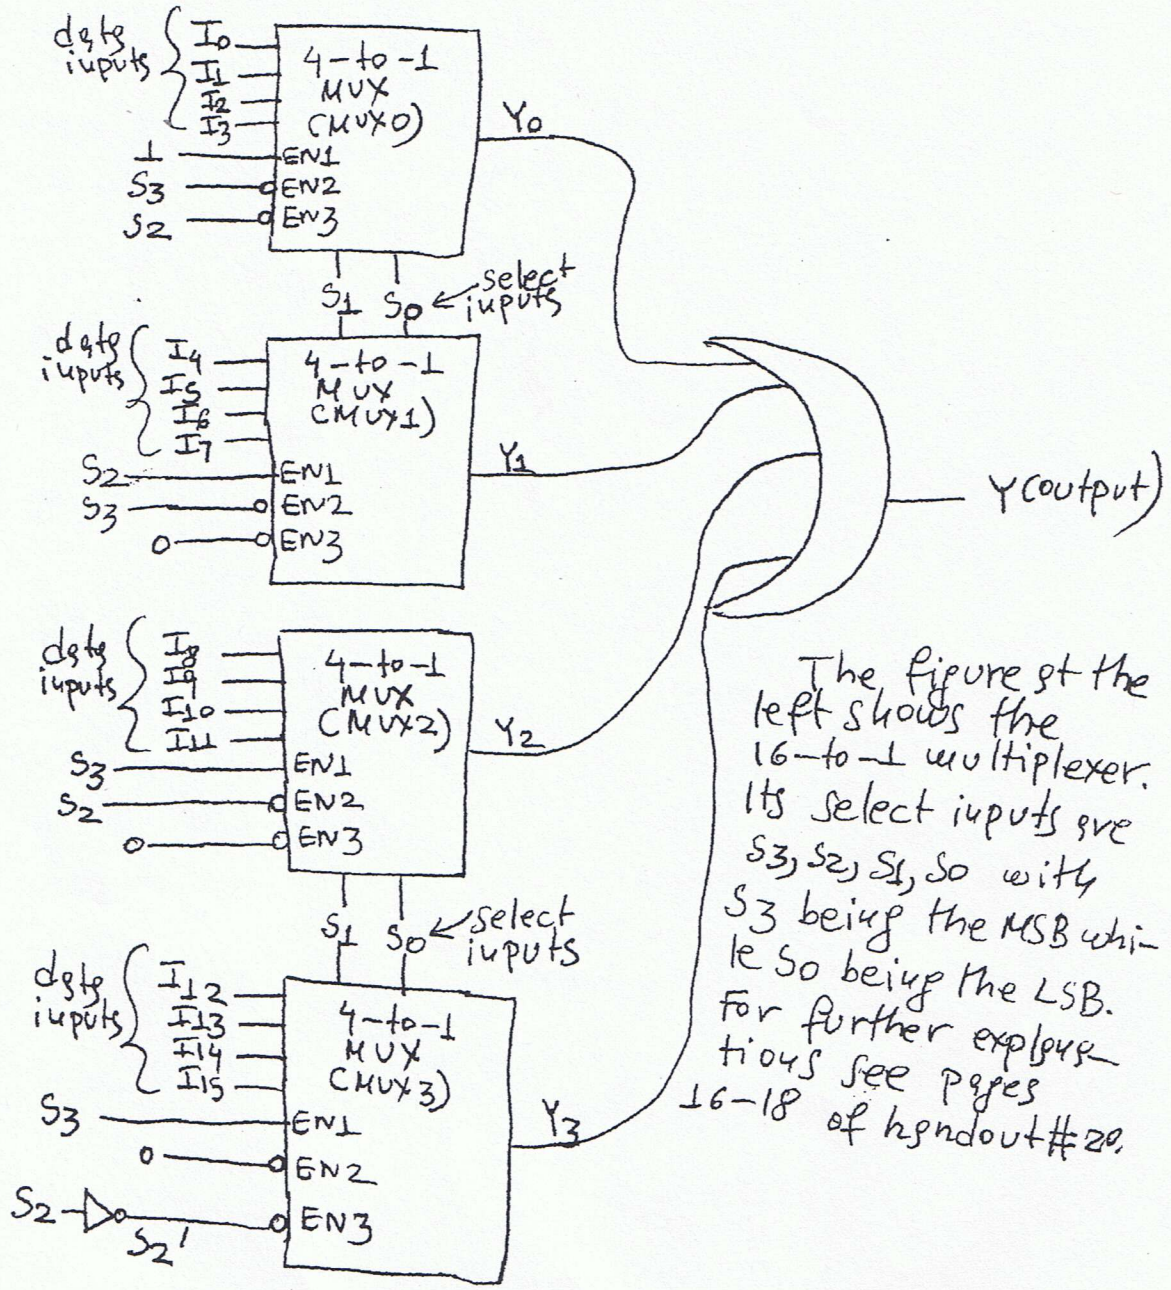 data
inputs
I0
I1
I2
I3
4-to-1
MUX
(MUX0)
1
S3
S2
EN1
EN2
EN3
Y0
S1 S0
select
inputs
data
inputs
I4
I5
I6
I7
4-to-1
MUX
(MUX1)
S2
S3
0
EN1
EN2
EN3
Y1
Y(output)
data
inputs
I8
I9
I10
I11
4-to-1
MUX
(MUX2)
S3
S2
0
EN1
EN2
EN3
Y2
S1 S0
select
inputs
data
inputs
I12
I13
I14
I15
4-to-1
MUX
(MUX3)
S3
0
S2
S2'
EN1
EN2
EN3
Y3
The figure at the
left shows the
16-to-1 multiplexer.
Its select inputs are
S3, S2, S1, S0 with
S3 being the MSB whi-
le S0 being the LSB.
For further explana-
tions see pages
16-18 of handout #20.